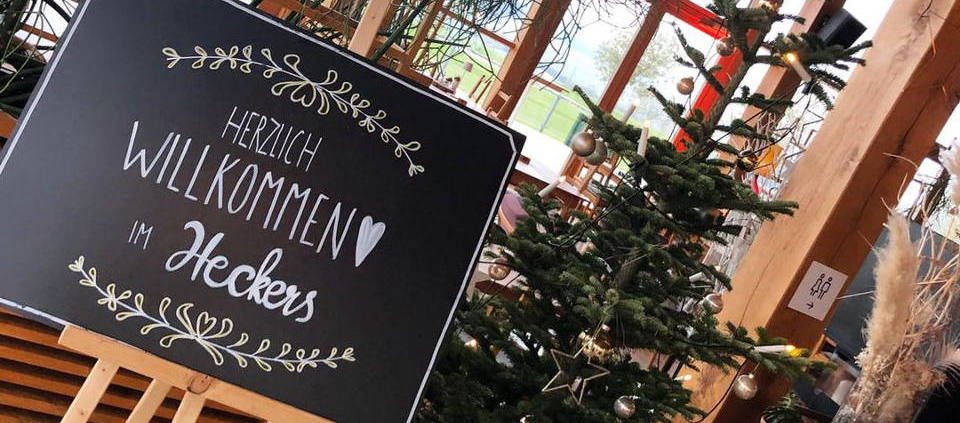 HERZLICH
WILLKOMMEN
IM Heckers